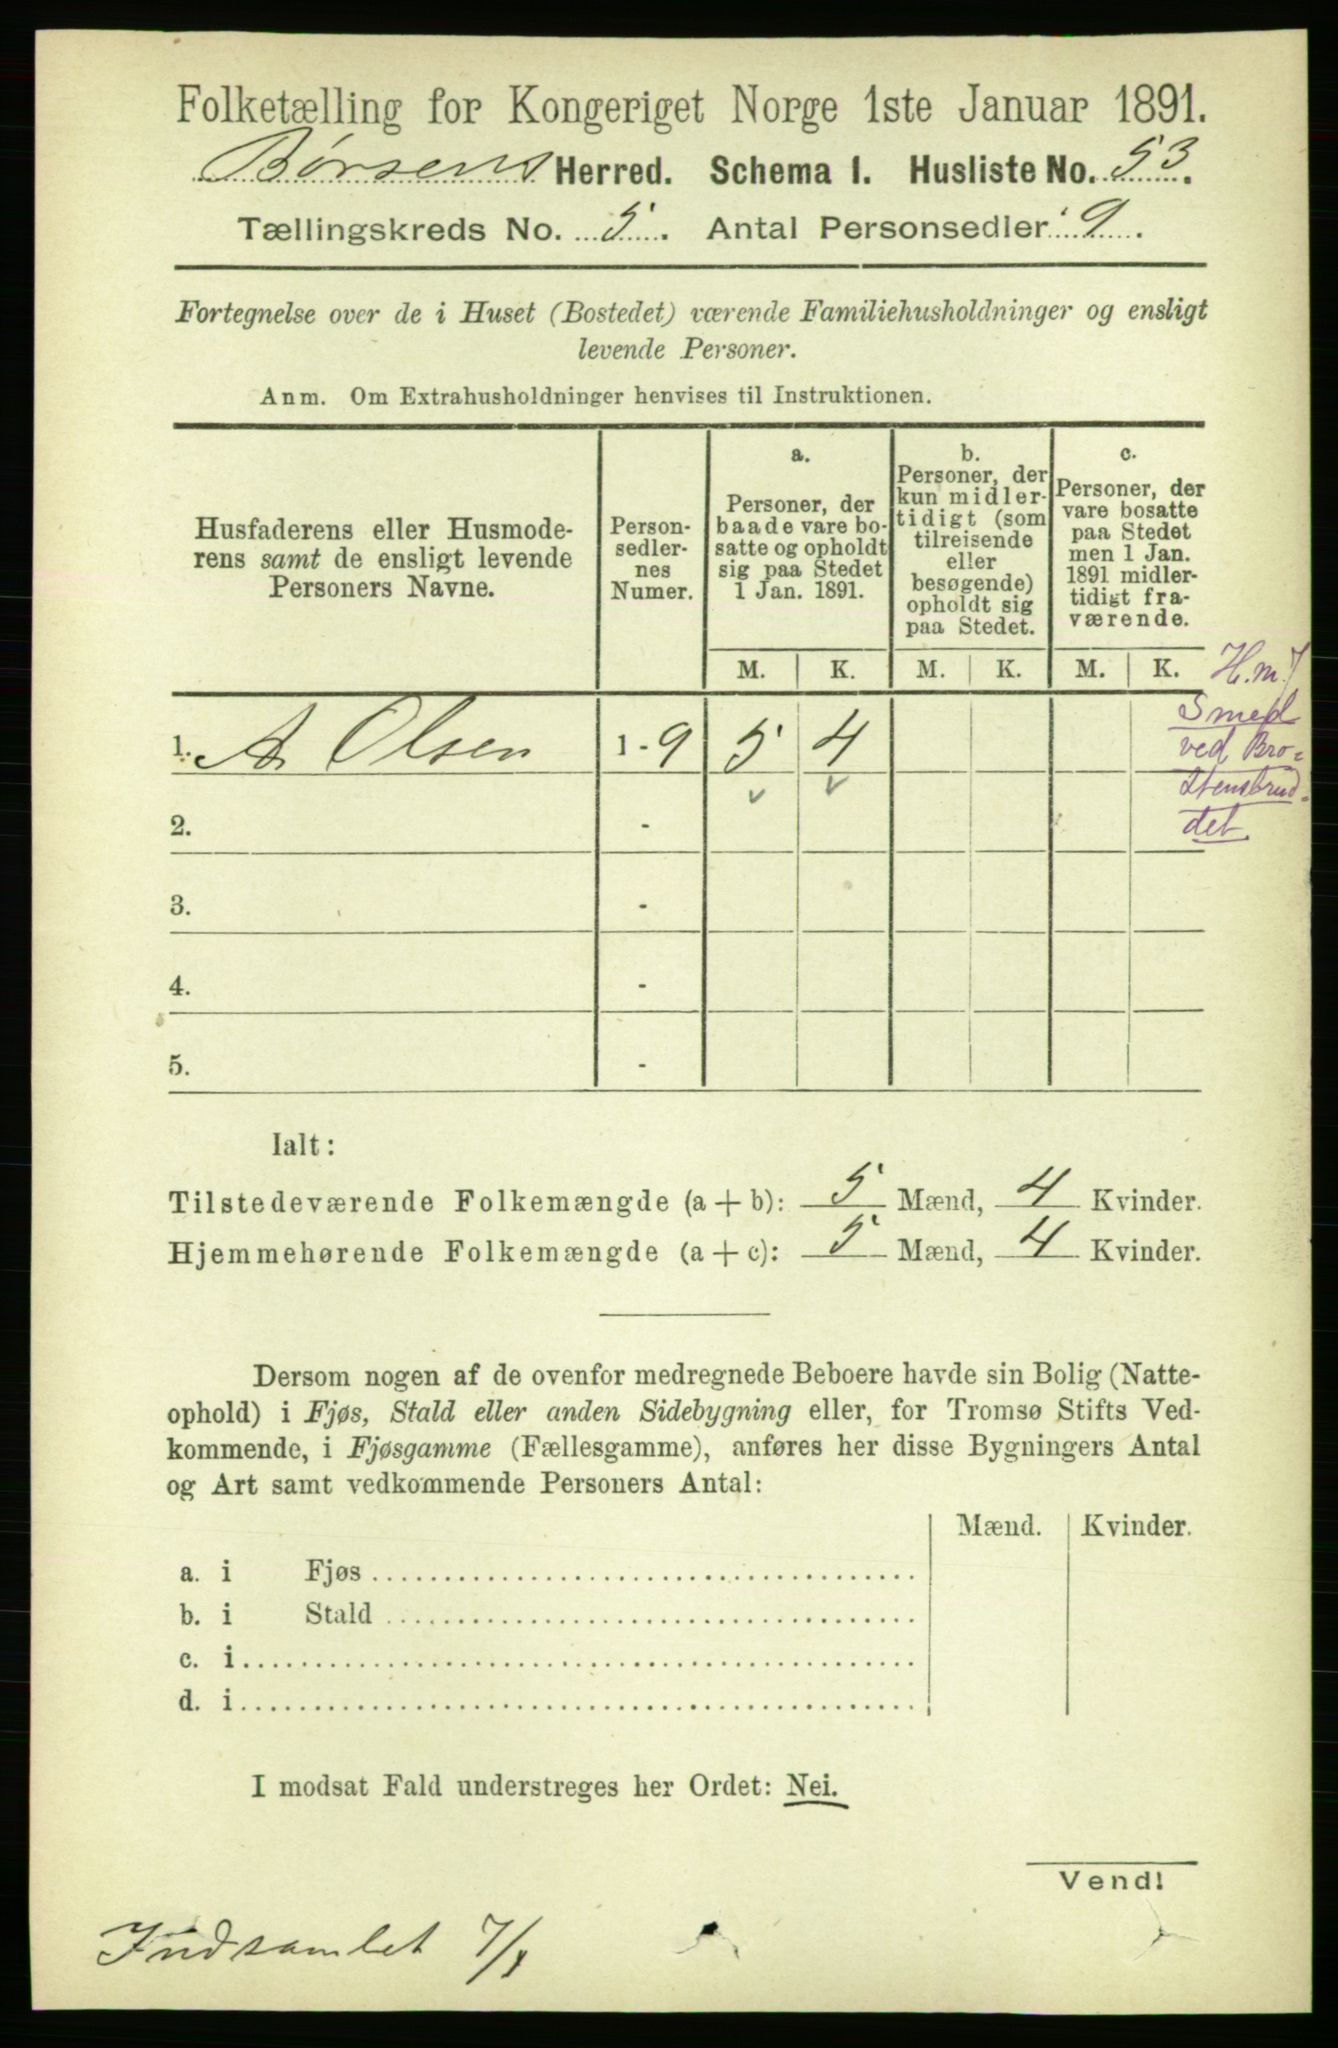 Folketælling for Kongeriget Norge 1ste Januar 1891.
Børsens Herred. Schema 1. Husliste No. 53.
Tællingskreds No. 5. Antal Personsedler 9.
Fortegnelse over de i Huset (Bostedet) værende Familiehusholdninger og ensligt
levende Personer.
Anm. Om Extrahusholdninger henvises til Instruktionen.
Husfaderens eller Husmode-
rens samt de ensligt levende
Personers Navne.
Person-
sedler-
nes
Numer.
a.
Personer, der
baade vare bo-
satte og opholdt
sig paa Stedet
1 Jan. 1891.
b.
Personer, der
kun midler-
tidigt (som
tilreisende
eller
besøgende)
opholdt sig
paa Stedet.
c.
Personer, der
vare bosatte
paa Stedet
men 1 Jan.
1891 midler-
tidigt fra-
værende.
M. K. M. K. M. K.
H.m.
Smed
ved Bro-
Stensbrud-
det
1. A. Olsen 1-9 5 4
2. -
3. -
4. -
5. -
Ialt:
Tilstedeværende Folkemængde (a + b): 5 Mænd, 4 Kvinder.
Hjemmehørende Folkemængde (a + c): 5 Mænd, 4 Kvinder.
Dersom nogen af de ovenfor medregnede Beboere havde sin Bolig (Natte-
ophold) i Fjøs, Stald eller anden Sidebygning eller, for Tromsø Stifts Ved-
kommende, i Fjøsgamme (Fællesgamme), anføres her disse Bygningers Antal
og Art samt vedkommende Personers Antal:
Mænd. Kvinder.
a. i Fjøs
b. i Stald
c. i
d. i
I modsat Fald understreges her Ordet: Nei.
Vend!
Indsamlet 7/1